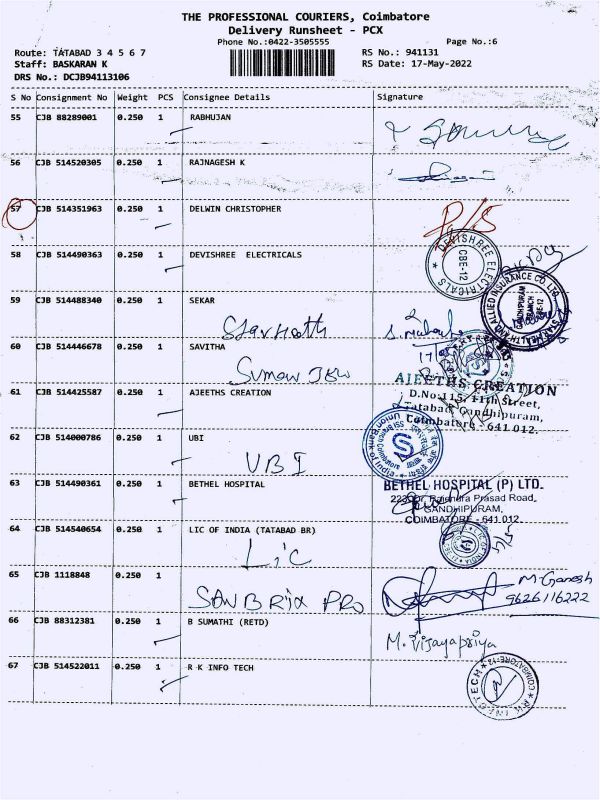 THE PROFESSIONAL COURIERS, Coimbatore
Delivery Runsheet - PCX
Phone No.:0422-3505555
Page No.:6
Route: TATABAD 3 4 5 6 7
RS No.: 941131
Staff: BASKARAN K
RS Date: 17-May-2022
DRS No.: DCJB94113106
S No Consignment No Weight PCS Consignee Details Signature
55 CJB 88289001 0.250 1 RABHUJAN
56 CJB 514520305 0.250 1 RAJNAGESH K
57 CJB 514351963 0.250 1 DELWIN CHRISTOPHER
D/S
58 CJB 514490363 0.250 1 DEVISHREE ELECTRICALS
DEVISHREE ELECTRICALS
CBE-12
STAR HEALTH AND ALLIED INSURANCE CO LTD.
GANDHIPURAM
BRANCH
CBE-12
59 CJB 514488340 0.250 1 SEKAR
60 CJB 514446678 0.250 1 SAVITHA
61 CJB 514425587 0.250 1 AJEETHS CREATION
AJEETHS CREATION
D.No:115, 11th Street,
Tatabad, Gandhipuram,
Coimbatore - 641 012.
62 CJB 514000786 0.250 1 UBI
UBI
Union Bank of India
63 CJB 514490361 0.250 1 BETHEL HOSPITAL
BETHEL HOSPITAL (P) LTD.
Rajendra Prasad Road,
GANDHIPURAM,
COIMBATORE - 641 012.
64 CJB 514540654 0.250 1 LIC OF INDIA (TATABAD BR)
LIC
65 CJB 1118848 0.250 1
PRO
M. Ganesh
9626116222
66 CJB 88312381 0.250 1 B SUMATHI (RETD)
M. Vijayapriya
67 CJB 514522011 0.250 1 R K INFO TECH
R.K. INFO TECH
COIMBATORE-12